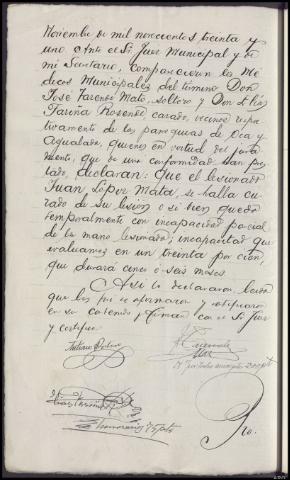 Noviembre de mil novecientos treinta y
uno. Ante el Sr. Juez Municipal y de
mi Secretario, comparecieron los Mé-
dicos Municipales del término Don
José Tarendo Mato, soltero y Don
Fariña Rosende casado, vecinos respec-
tivamente de las parroquias de Oca y
Agualada, quienes en virtud del jura-
mento, que de una conformidad han pres-
tado, declaran: que el lesionado
Juan López Mata, se halla cu-
rado de su lesión si bien queda
temporalmente con incapacidad parcial
de la mano lesionada; incapacidad que
evaluamos en un treinta por ciento,
que durará cinco o seis meses.
Así lo declararon, leída
que les fué se afirmaron y ratificaron
en su contenido y firman con el Sr. Juez
y certifico